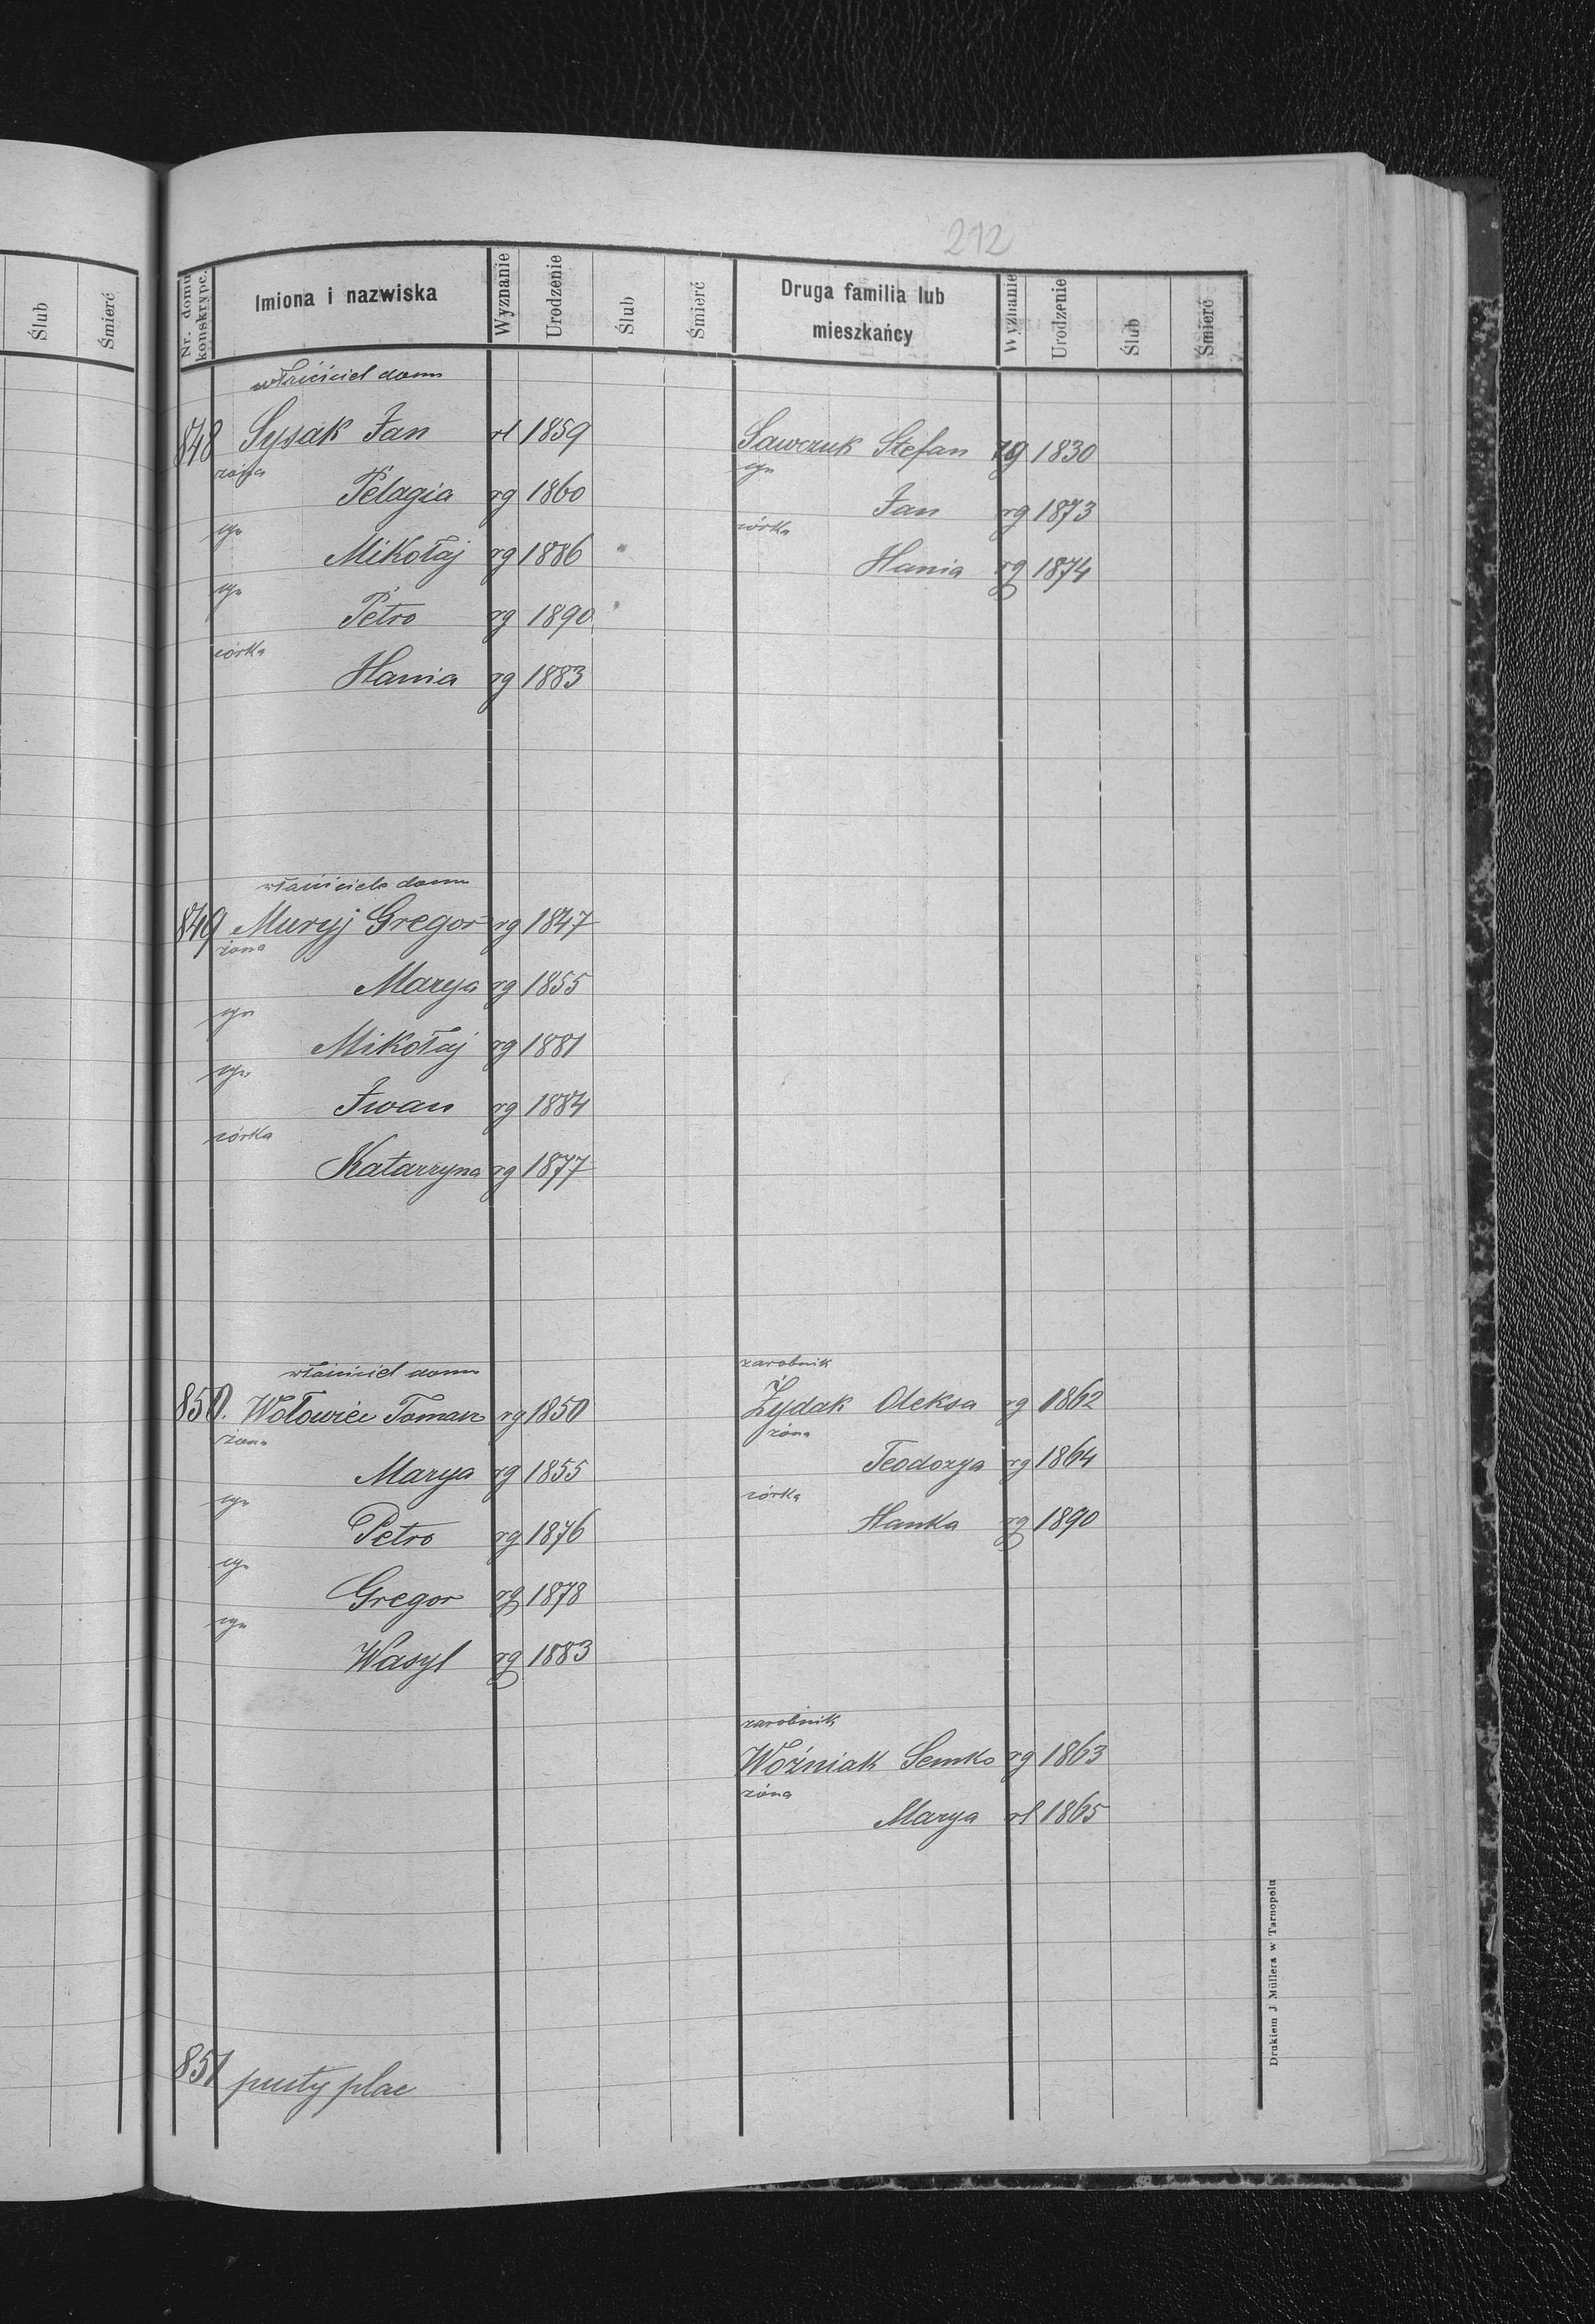 Ślub Śmierć
212
Nr. domu konskrypc. Imiona i nazwiska Wyznanie Urodzenie Ślub Śmierć Druga familia lub mieszkańcy Wyznanie Urodzenie Ślub Śmierć
właściciel domu
848 Sysak Jan rł 1859 Sawczuk Stefan rg 1830
żona syn
Pelagia rg 1860 Jan rg 1873
syn córka
Mikołaj rg 1886 Hania rg 1874
syn
Petro rg 1890
córka
Hania rg 1883
właściciel domu
849 Muryj Gregor rg 1847
żona
Marya rg 1855
syn
Mikołaj rg 1881
syn
Iwan rg 1884
córka
Katarzyna rg 1877
właściciel domu zarobnik
850. Wołowiec Tomasz rg 1850 Żydak Oleksa rg 1862
żona żona
Marya rg 1855 Teodozya rg 1864
syn córka
Petro rg 1876 Hanka rg 1890
syn
Gregor rg 1878
syn
Wasyl rg 1883
zarobnik
Woźniak Semko rg 1863
żona
Marya rł 1865
851 pusty plac
Drukiem J Müllera w Tarnopolu